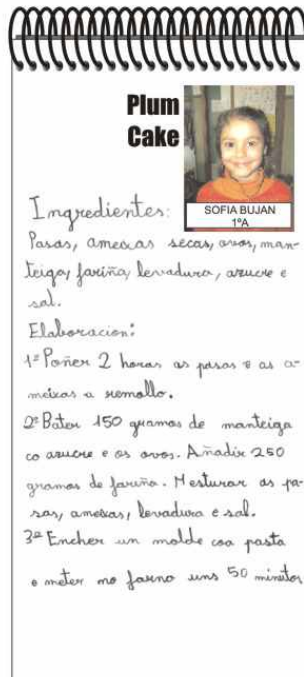 Plum
Cake
SOFIA BUJAN
1ºA
Ingredientes:
Pasas, ameixas secas, ovos, man-
teiga, fariña, levadura, azucre e
sal.
Elaboracion:
1º Poñer 2 horas as pasas e as a-
meixas a remollo.
2º Bater 150 gramos de manteiga
co azucre e os ovos. Añadir 250
gramos de fariña. Mesturar as pa-
sas, ameixas, levadura e sal.
3º Encher un molde coa pasta
e meter no forno uns 50 minutos